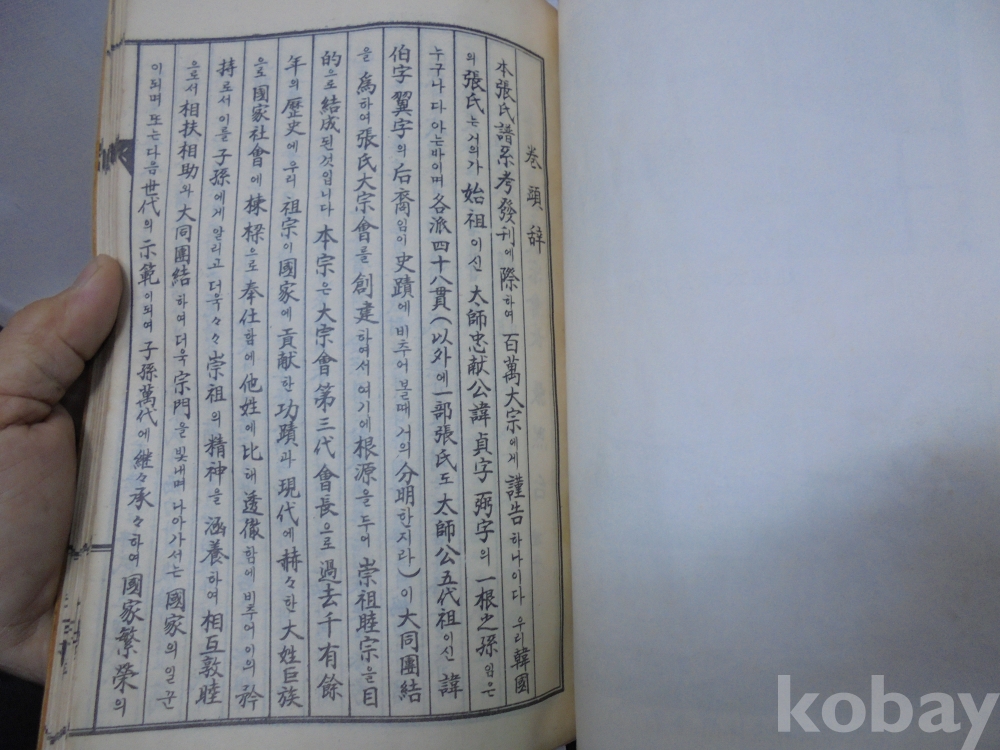 卷頭辞
本張氏譜系考發刊에 際하여 百萬大宗에게 謹告하나이다 우리 韓國
의 張氏는 거의가 始祖이신 太師忠献公諱貞字 弼字의 一根之孫임은
누구나 다 아는바이며 各派四十八貫(以外에 一部張氏도 太師公五代祖이신 諱
伯字 翼字의 后裔임이 史蹟에 비추어 볼때 거의 分明한지라) 이 大同團結
을 爲하여 張氏大宗會를 創建하여서 여기에 根源을 두어 崇祖睦宗을 目
的으로 結成된것입니다 本宗은 大宗會第三代會長으로 過去千有餘
年의 歷史에 우리 祖宗이 國家에 貢献한 功蹟과 現代에 赫々한 大姓巨族
으로 國家社會에 棟樑으로 奉仕함에 他姓에 比해 透徹함에 비추어 이의 矜
持로서 이를 子孫에게 알리고 더욱々々 崇祖의 精神을 涵養하여 相互敦睦
으로서 相扶相助와 大同團結하여 더욱 宗門을 빛내며 나아가서는 國家의 일꾼
이되며 또는 다음 世代의 示範이되여 子孫萬代에 継々承々하여 國家繁榮의
kobay